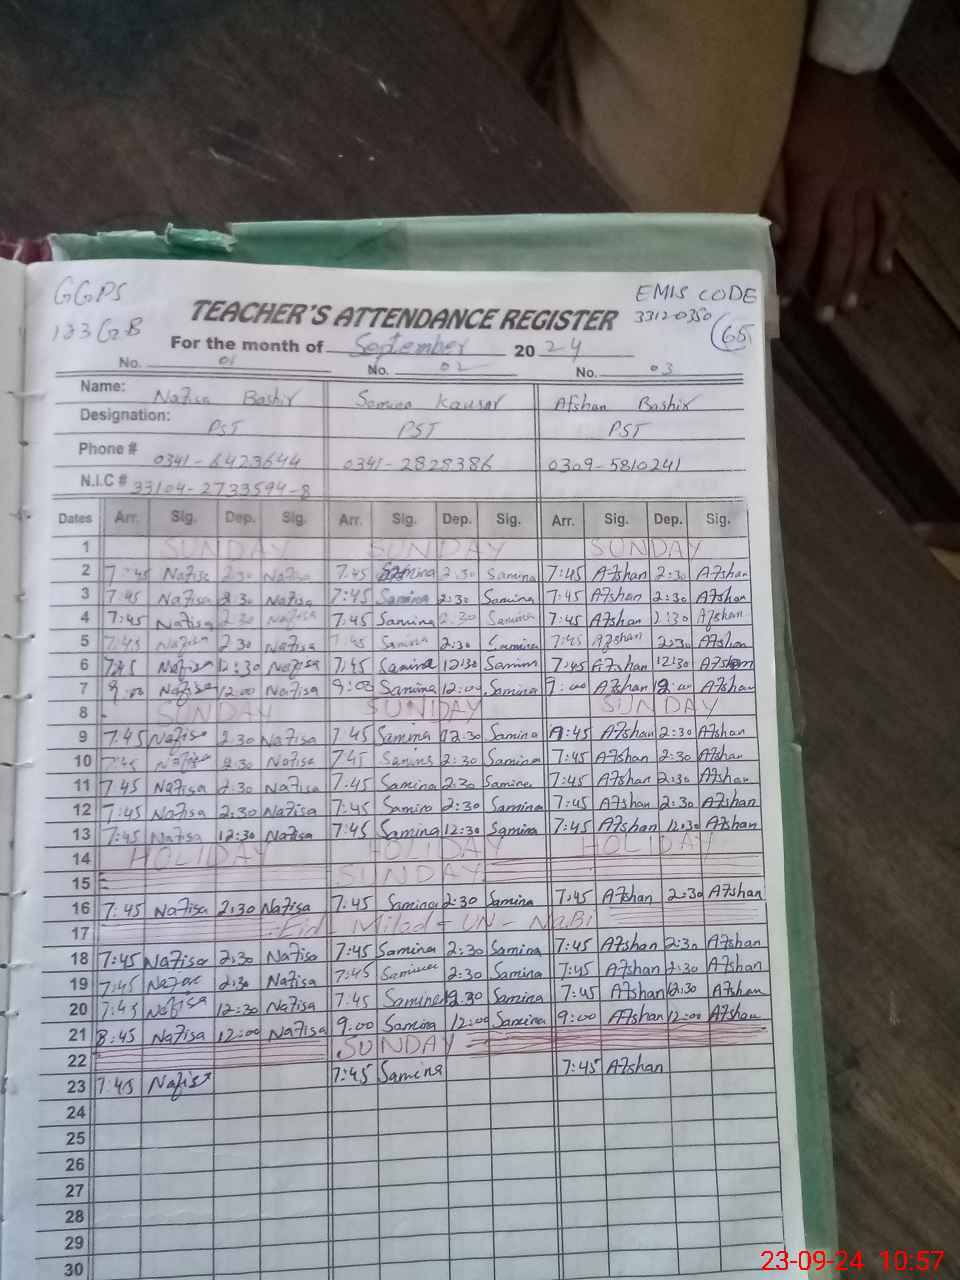 GGPS EMIS CODE
123 GB TEACHER'S ATTENDANCE REGISTER 33120350 (65)
For the month of September 2024
No. 01 No. 02 No. 03
Name: Nafisa Bashir Samina Kausar Afshan Bashir
Designation: PST PST PST
Phone # 0341-6423644 0341-2828386 0309-5810241
N.I.C # 33104-2733594-8
Dates Arr. Sig. Dep. Sig. Arr. Sig. Dep. Sig. Arr. Sig. Dep. Sig.
1 SUNDAY SUNDAY SUNDAY
2 7:45 Nafisa 2:30 Nafisa 7:45 Samina 2:30 Samina 7:45 Afshan 2:30 Afshan
3 7:45 Nafisa 2:30 Nafisa 7:45 Samina 2:30 Samina 7:45 Afshan 2:30 Afshan
4 7:45 Nafisa 2:30 Nafisa 7:45 Samina 2:30 Samina 7:45 Afshan 2:30 Afshan
5 7:45 Nafisa 2:30 Nafisa 7:45 Samina 2:30 Samina 7:45 Afshan 2:30 Afshan
6 7:45 Nafisa 12:30 Nafisa 7:45 Samina 12:30 Samina 7:45 Afshan 12:30 Afshan
7 9:00 Nafisa 12:00 Nafisa 9:00 Samina 12:00 Samina 9:00 Afshan 12:00 Afshan
8 SUNDAY SUNDAY SUNDAY
9 7:45 Nafisa 2:30 Nafisa 7:45 Samina 2:30 Samina 7:45 Afshan 2:30 Afshan
10 7:45 Nafisa 2:30 Nafisa 7:45 Samina 2:30 Samina 7:45 Afshan 2:30 Afshan
11 7:45 Nafisa 2:30 Nafisa 7:45 Samina 2:30 Samina 7:45 Afshan 2:30 Afshan
12 7:45 Nafisa 2:30 Nafisa 7:45 Samina 2:30 Samina 7:45 Afshan 2:30 Afshan
13 7:45 Nafisa 12:30 Nafisa 7:45 Samina 12:30 Samina 7:45 Afshan 12:30 Afshan
14 HOLIDAY HOLIDAY HOLIDAY
15 SUNDAY
16 7:45 Nafisa 2:30 Nafisa 7:45 Samina 2:30 Samina 7:45 Afshan 2:30 Afshan
17 Eid-Milad-UN-NaBi
18 7:45 Nafisa 2:30 Nafisa 7:45 Samina 2:30 Samina 7:45 Afshan 2:30 Afshan
19 7:45 Nafisa 2:30 Nafisa 7:45 Samina 2:30 Samina 7:45 Afshan 2:30 Afshan
20 7:45 Nafisa 12:30 Nafisa 7:45 Samina 12:30 Samina 7:45 Afshan 12:30 Afshan
21 8:45 Nafisa 12:00 Nafisa 9:00 Samina 12:00 Samina 9:00 Afshan 12:00 Afshan
22 SUNDAY
23 7:45 Nafisa 7:45 Samina 7:45 Afshan
24
25
26
27
28
29
30
23-09-24 10:57